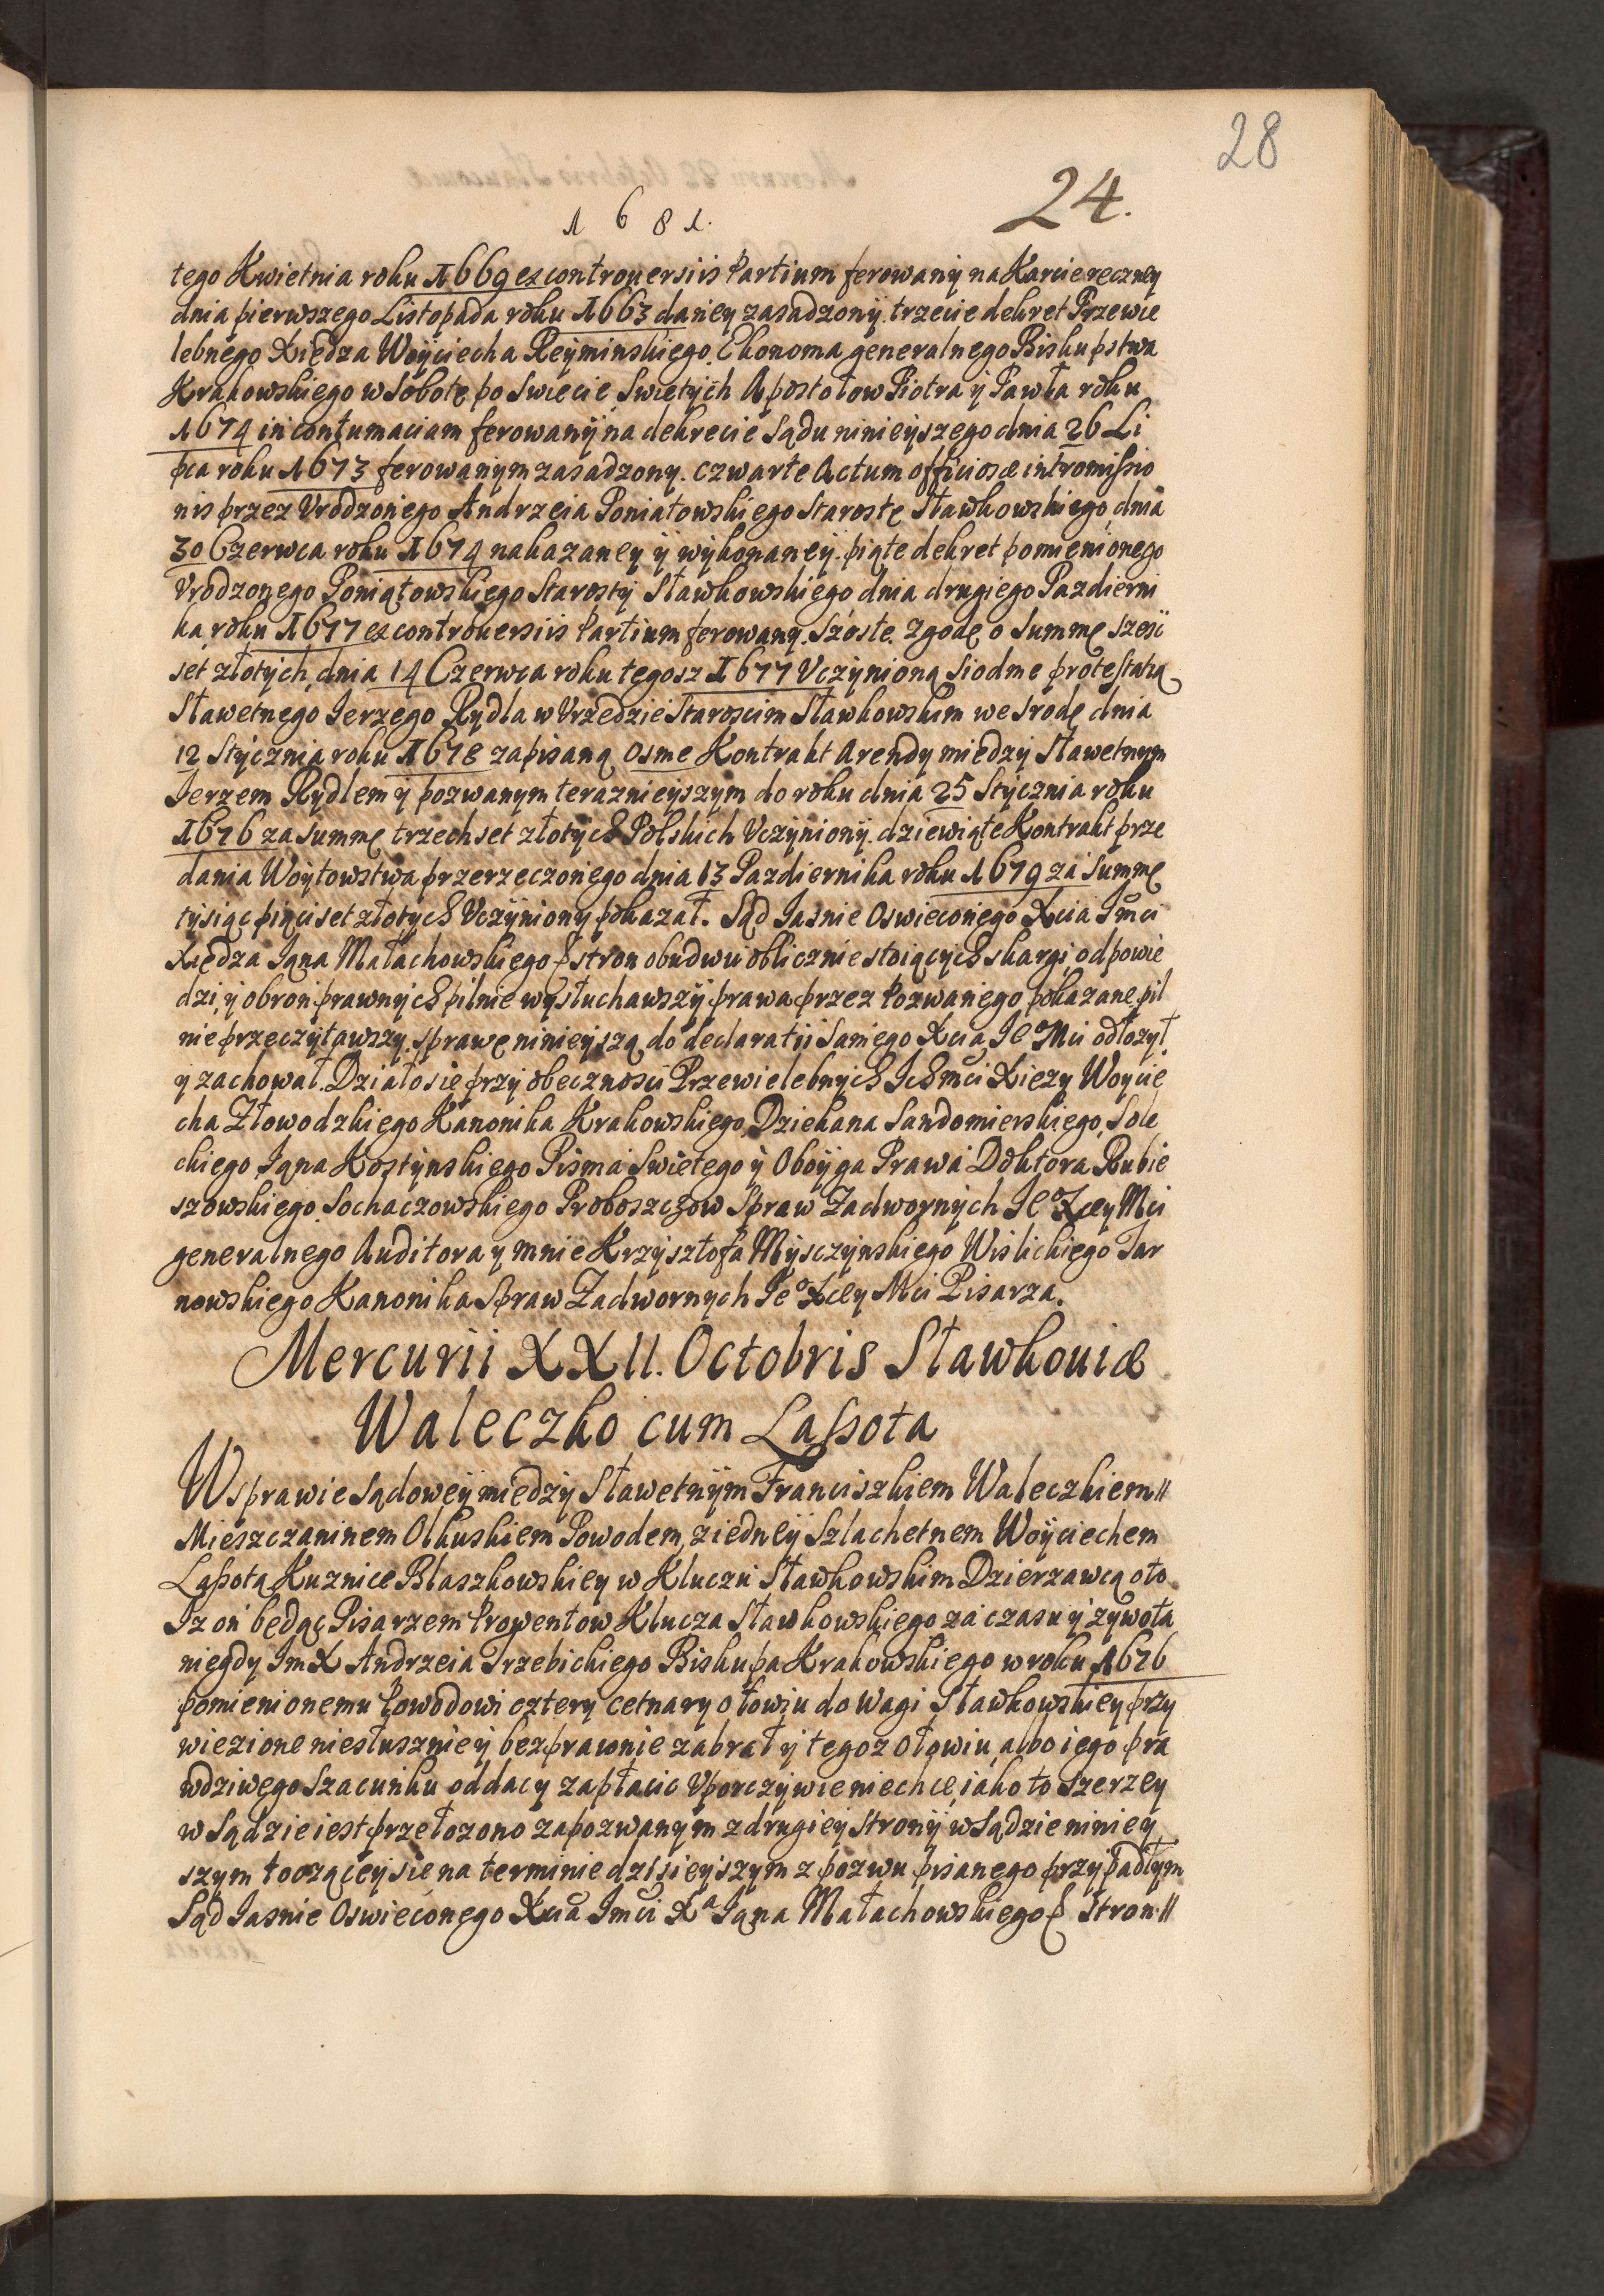 28
24.
1681.
tego Kwietnia roku 1669 ex controuersiis Partium ferowany na Karcie ręczney
dnia pierwszego Listopada roku 1663 daney zasadzony. trzecie dekret Przewie
lebnego Xiędza Woyciecha Reyminskiego Ekonoma generalnego Biskupstwa
Krakowskiego w Sobotę po Swięcie Swiętych Apostołow Piotra y Pawła roku
1674 in contumaciam ferowany na dekrecie Sądu ninieyszego dnia 26 Li
pca roku 1673 ferowanym zasadzony. czwarte Actum officiosæ intromissio
nis przez Vrodzonego Andrzeia Poniatowskiego Starostę Sławkowskiego dnia
30 Czerwca roku 1674 nakazaney y wykonaney. piąte dekret pomienionego
Vrodzonego Poniatowskiego Starosty Sławkowskiego dnia drugiego Pazdierni
ka roku 1677 ex controuersiis Partium ferowany. Szoste. Zgodę o Summę szesc
set złotych dnia 14 Czerwca roku tegosz 1677 Vczynioną Siodme protestatią
Sławetnego Ierzego Rydla w Vrzędzie Starościm Sławkowskim we Srodę dnia
12 Stycznia roku 1678 zapisaną osme Kontrakt Arendy między Sławetnym
Ierzem Rydlem y pozwanym teraznieyszym do roku dnia 25 Stycznia roku
1676 za Summę trzechset złotych Polskich Vczyniony. dziewiąte Kontrakt prze
dania Woytowstwa przerzeczonego dnia 13 Pazdiernika roku 1679 za Summę
tysiąc pięciset złotych Vczyniony pokazał. Sąd Iasnie Oswieconego Xcia Imci
Xiędza Iana Małachowskiego & stron obudwu oblicznie stoiących skargi odpowie
dzi, y obron prawnych pilnie wysłuchawszy prawa przez Pozwanego pokazane pil
nie przeczytawszy sprawę ninieyszą do declaratii Samego Xcia Ieo Mci odłozył
y zachował. Działo się przy obecznosci Przewielebnych Ich mci Xiezy Woycie
cha Złowodzkiego Kanonika Krakowskiego Dziekana Sandomierskiego, Sole
ckiego Iana Kostynskiego Pisma Swietego y Oboyga Prawa Doktora Rubie
szowskiego Sochaczowskiego Proboszczow Spraw Zadwornych Ieo Xcey Mci
generalnego Auditora y mnie Krzysztofa Mysczynskiego Wislickiego Tar
nowskiego Kanonika Spraw Zadwornych Ieo Xcey Mci Pisarza.
Mercurii XXII. Octobris Sławkouiæ
Waleczko cum Lassota
W sprawie Sądowey między Sławetnym Franciszkiem Waleczkiem
Mieszczaninem Olkuskiem Powodem, z iedney Szlachetnem Woyciechem
Lassotą Kuznice Blaszkowskiey w Kluczu Sławkowskim Dzierzawcą oto
Iz on będąc Pisarzem Prowentow Klucza Sławkowskiego za czasu y zywota
niegdy Im X Andrzeia Trzebickiego Biskupa Krakowskiego w roku 1676
pomienionemu Powodowi cztery cetnary ołowiu do wagi Sławkowskiey przy
wiezione niesłusznie y bezprawnie zabrał y tegoz ołowiu albo iego pra
wdziwego szacunku oddac y zapłacic Vporczywie niechce, iako to szerzey
w Sądzie iest przełozono zapozwanym z drugiey strony w Sądzie niniey
szym toczącey się na terminie dzisieyszym z pozwu pisanego przypadłym
Sąd Iasnie Oswieconego Xcia Imci Xa Iana Małachowskiego & Stron